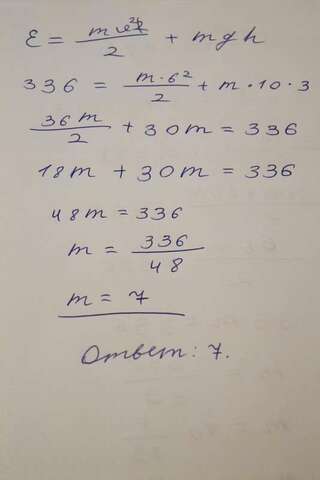 E = mv²/2 + mgh
336 = m·6²/2 + m·10·3
36m/2 + 30m = 336
18m + 30m = 336
48m = 336
m = 336/48
m = 7
Ответ: 7.